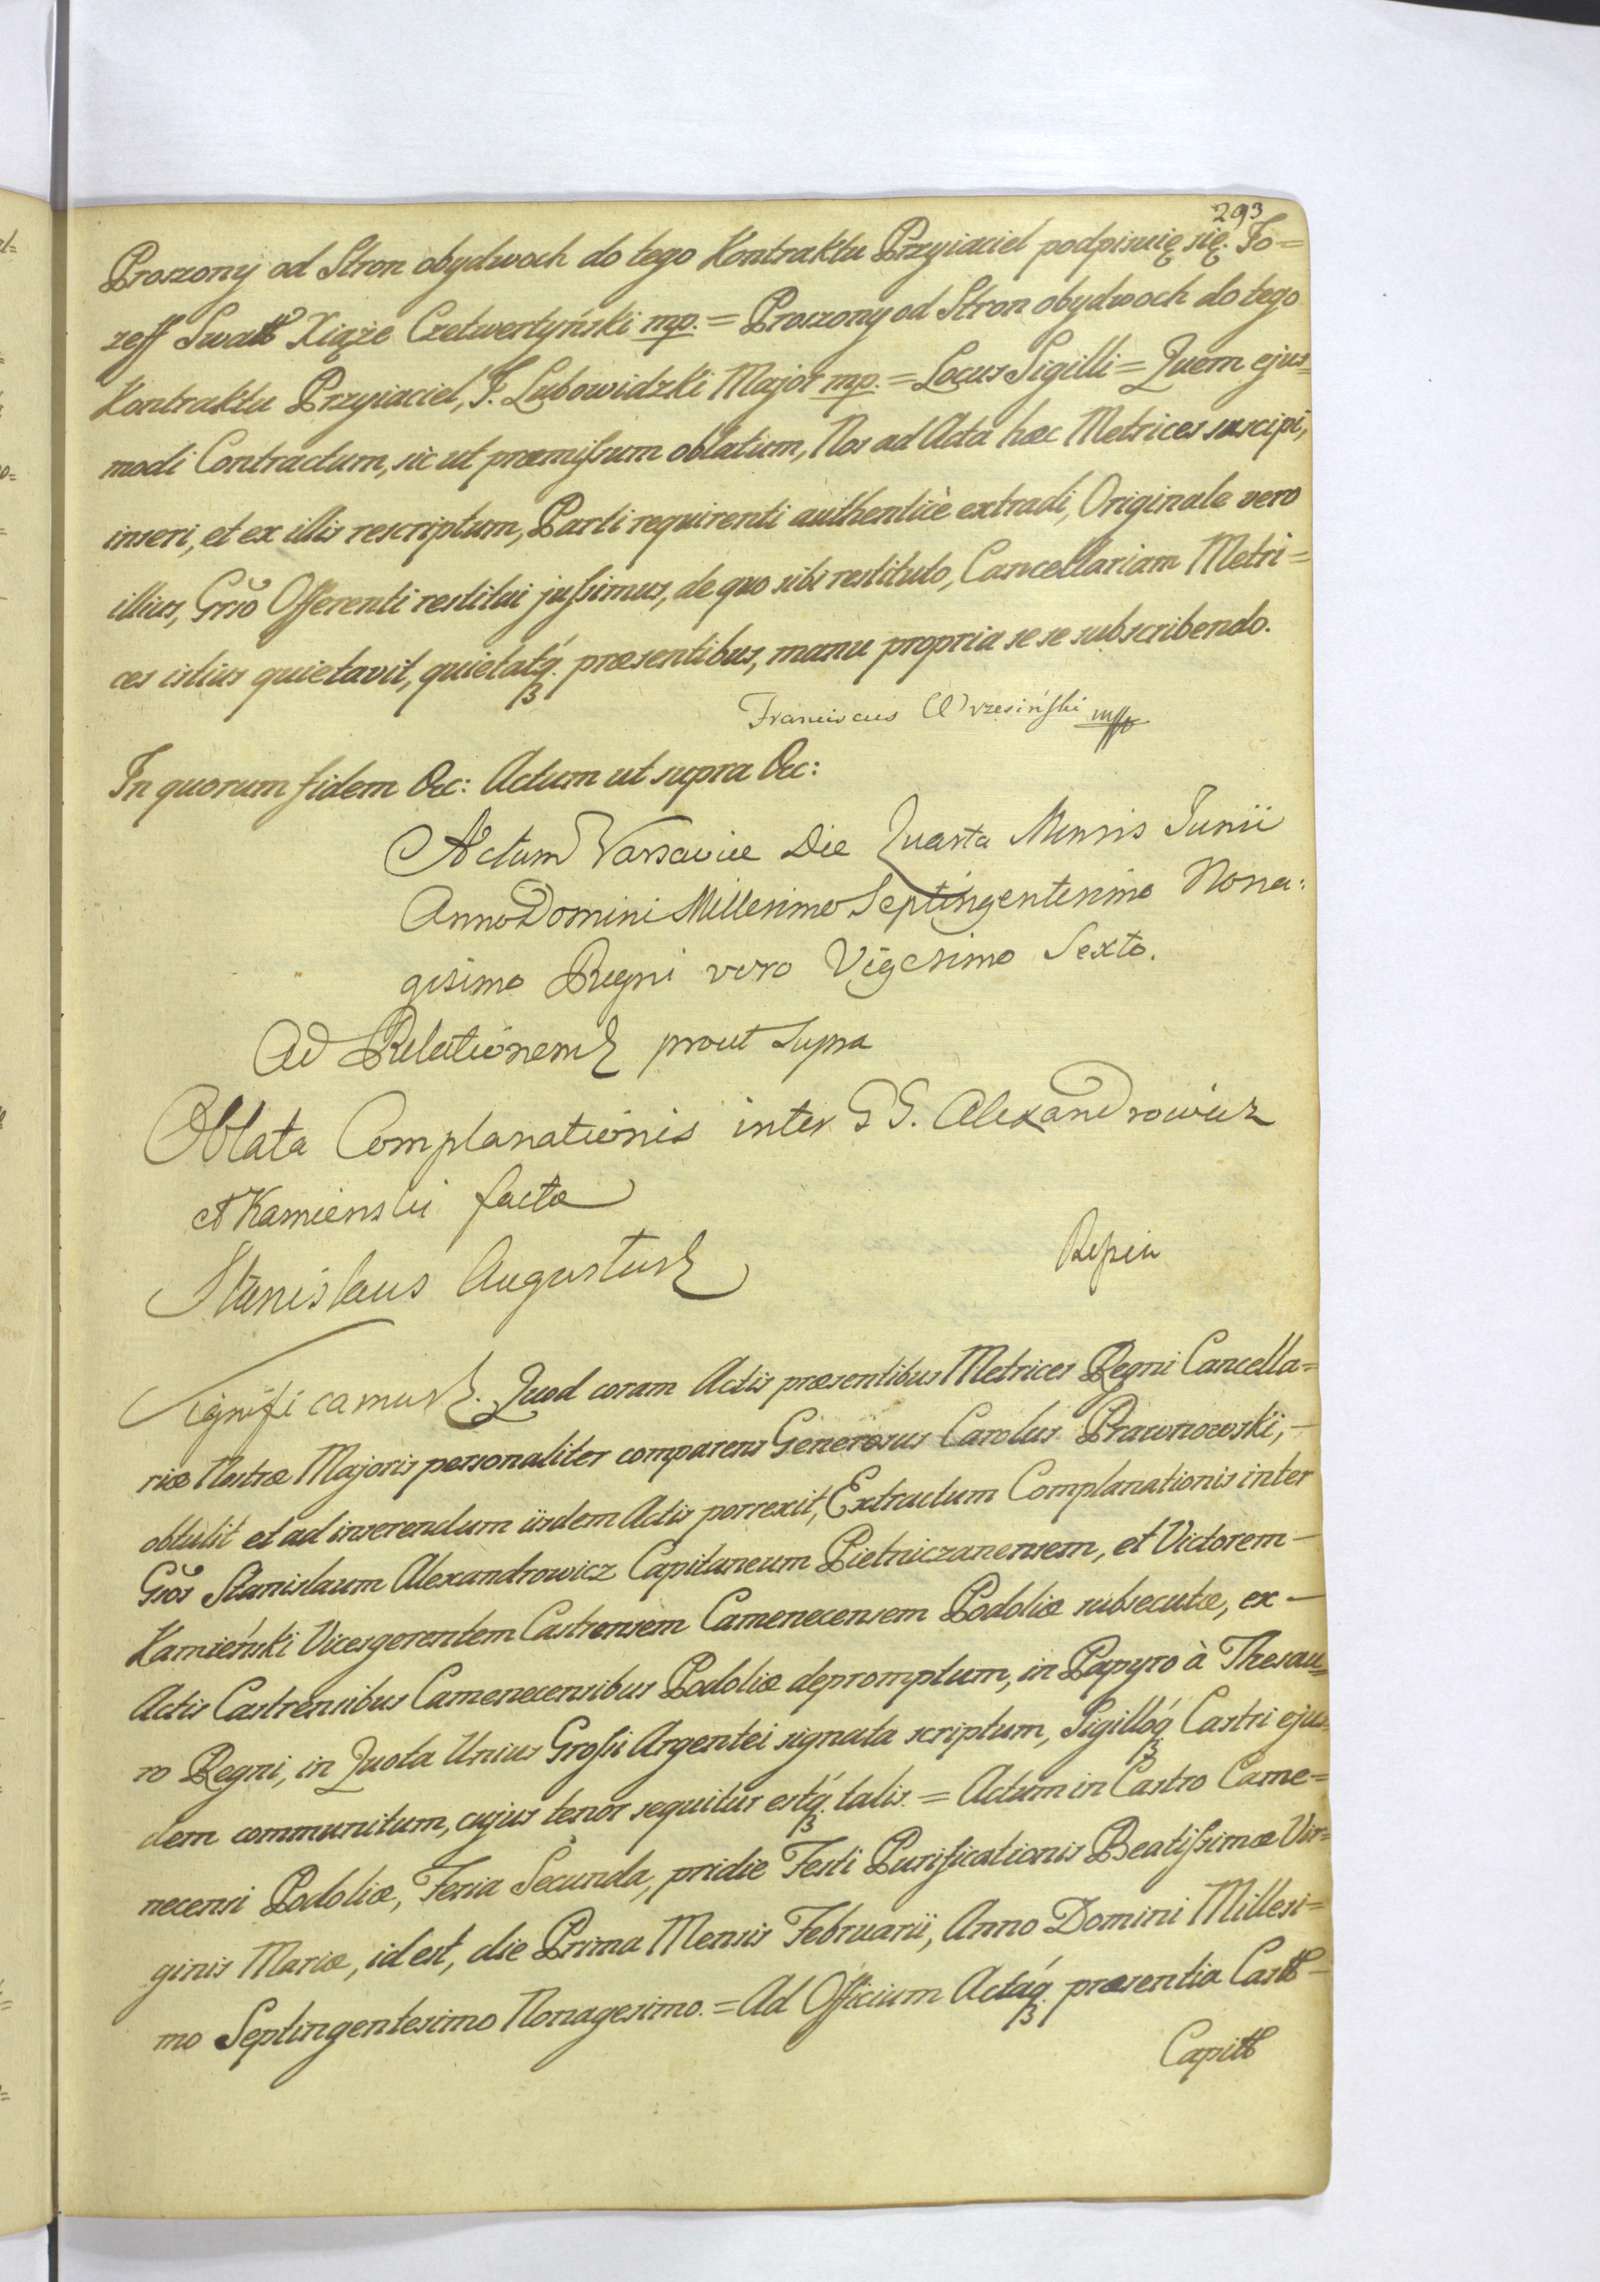 293
Proszony od Stron obydwoch do tego Kontraktu Przyiaciel podpisuię się. Jo=
zeff Swatt Xiąże Czetwertyński mp. = Proszony od Stron obydwoch do tego
Kontraktu Przyiaciel, F. Lubowidzki Major mp. = Locus Sigilli = Quem ejus=
modi Contractum, sic ut præmissum oblatum, Nos ad Acta hæc Metrices suscipi,
inseri, et ex illis rescriptum, Parti requirenti authenticè extradi, Originale vero
illius, Grso Offerenti restitui jussimus, de quo sibi restituto, Cancellariam Metri=
ces istius quietavit, quietatq3. præsentibus, manu propria se se subscribendo.
Franciscus Wrzesiński mp
In quorum fidem &c: Actum ut supra &c:
Actum Varsaviæ Die Quarta Mensis Junii
Anno Domini Millesimo Septingentesimo Nona:
gesimo Regni vero Vigesimo Sexto.
Ad Relationem prout supra
Oblata Complanationis inter GG. Alexandrowicz
et Kamienski factæ
Stanislaus Augustus
Significamus. Quod coram Actis præsentibus Metrices Regni Cancella=
riæ Nostræ Majoris personaliter comparens Generosus Carolus Prawonowski, –
obtulit et ad inserendum iisdem Actis porrexit, Extractum Complanationis inter
Gsos Stanislaum Alexandrowicz Capitaneum Pietniczanensem, et Victorem –
Kamieński Vicesgerentem Castrensem Camenecensem Podoliæ subsecutæ, ex –
Actis Castrensibus Camenecensibus Podoliæ depromptum, in Papyro à Thesau=
ro Regni, in Quota Unius Grossi Argentei signata scriptum, Sigillóq3 Castri ejus=
dem communitum, cujus tenor sequitur estq3. talis. = Actum in Castro Came=
necensi Podoliæ, Feria Secunda, pridie Festi Purificationis Beatissimæ Vir=
ginis Mariæ, id est, die Prima Mensis Februarii, Anno Domini Millesi=
mo Septingentesimo Nonagesimo. = Ad Officium Actáq3. præsentia Castt –
Capitt